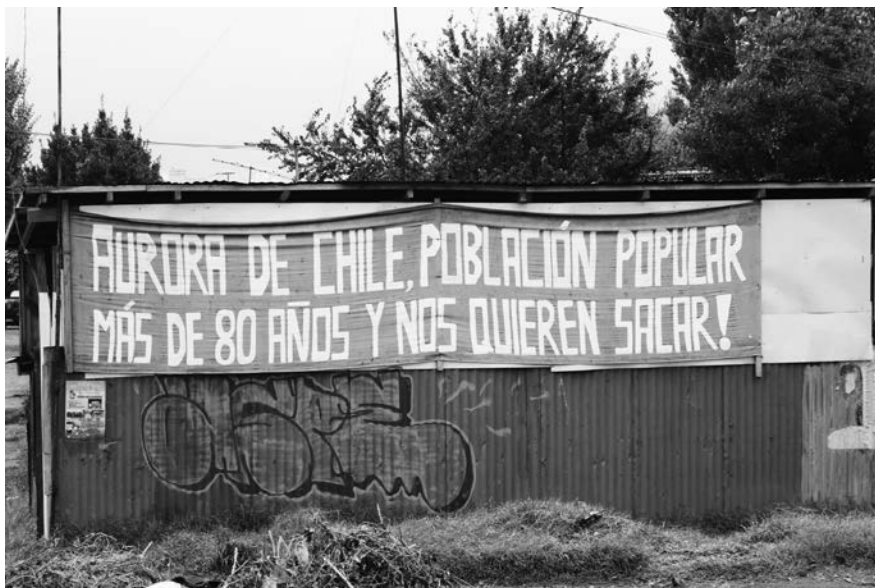 AURORA DE CHILE, POBLACIÓN POPULAR
MÁS DE 80 AÑOS Y NOS QUIEREN SACAR!